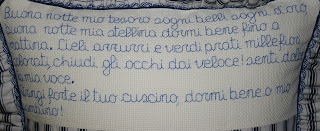 Buona notte mio tesoro sogni belli, sogni d'oro,
buona notte mia stellina dormi bene fino a
mattina. Cieli azzurri e verdi prati, mille fiori
colorati, chiudi gli occhi dai veloce! senti
mia voce.
forte il tuo cuscino, dormi bene o mio